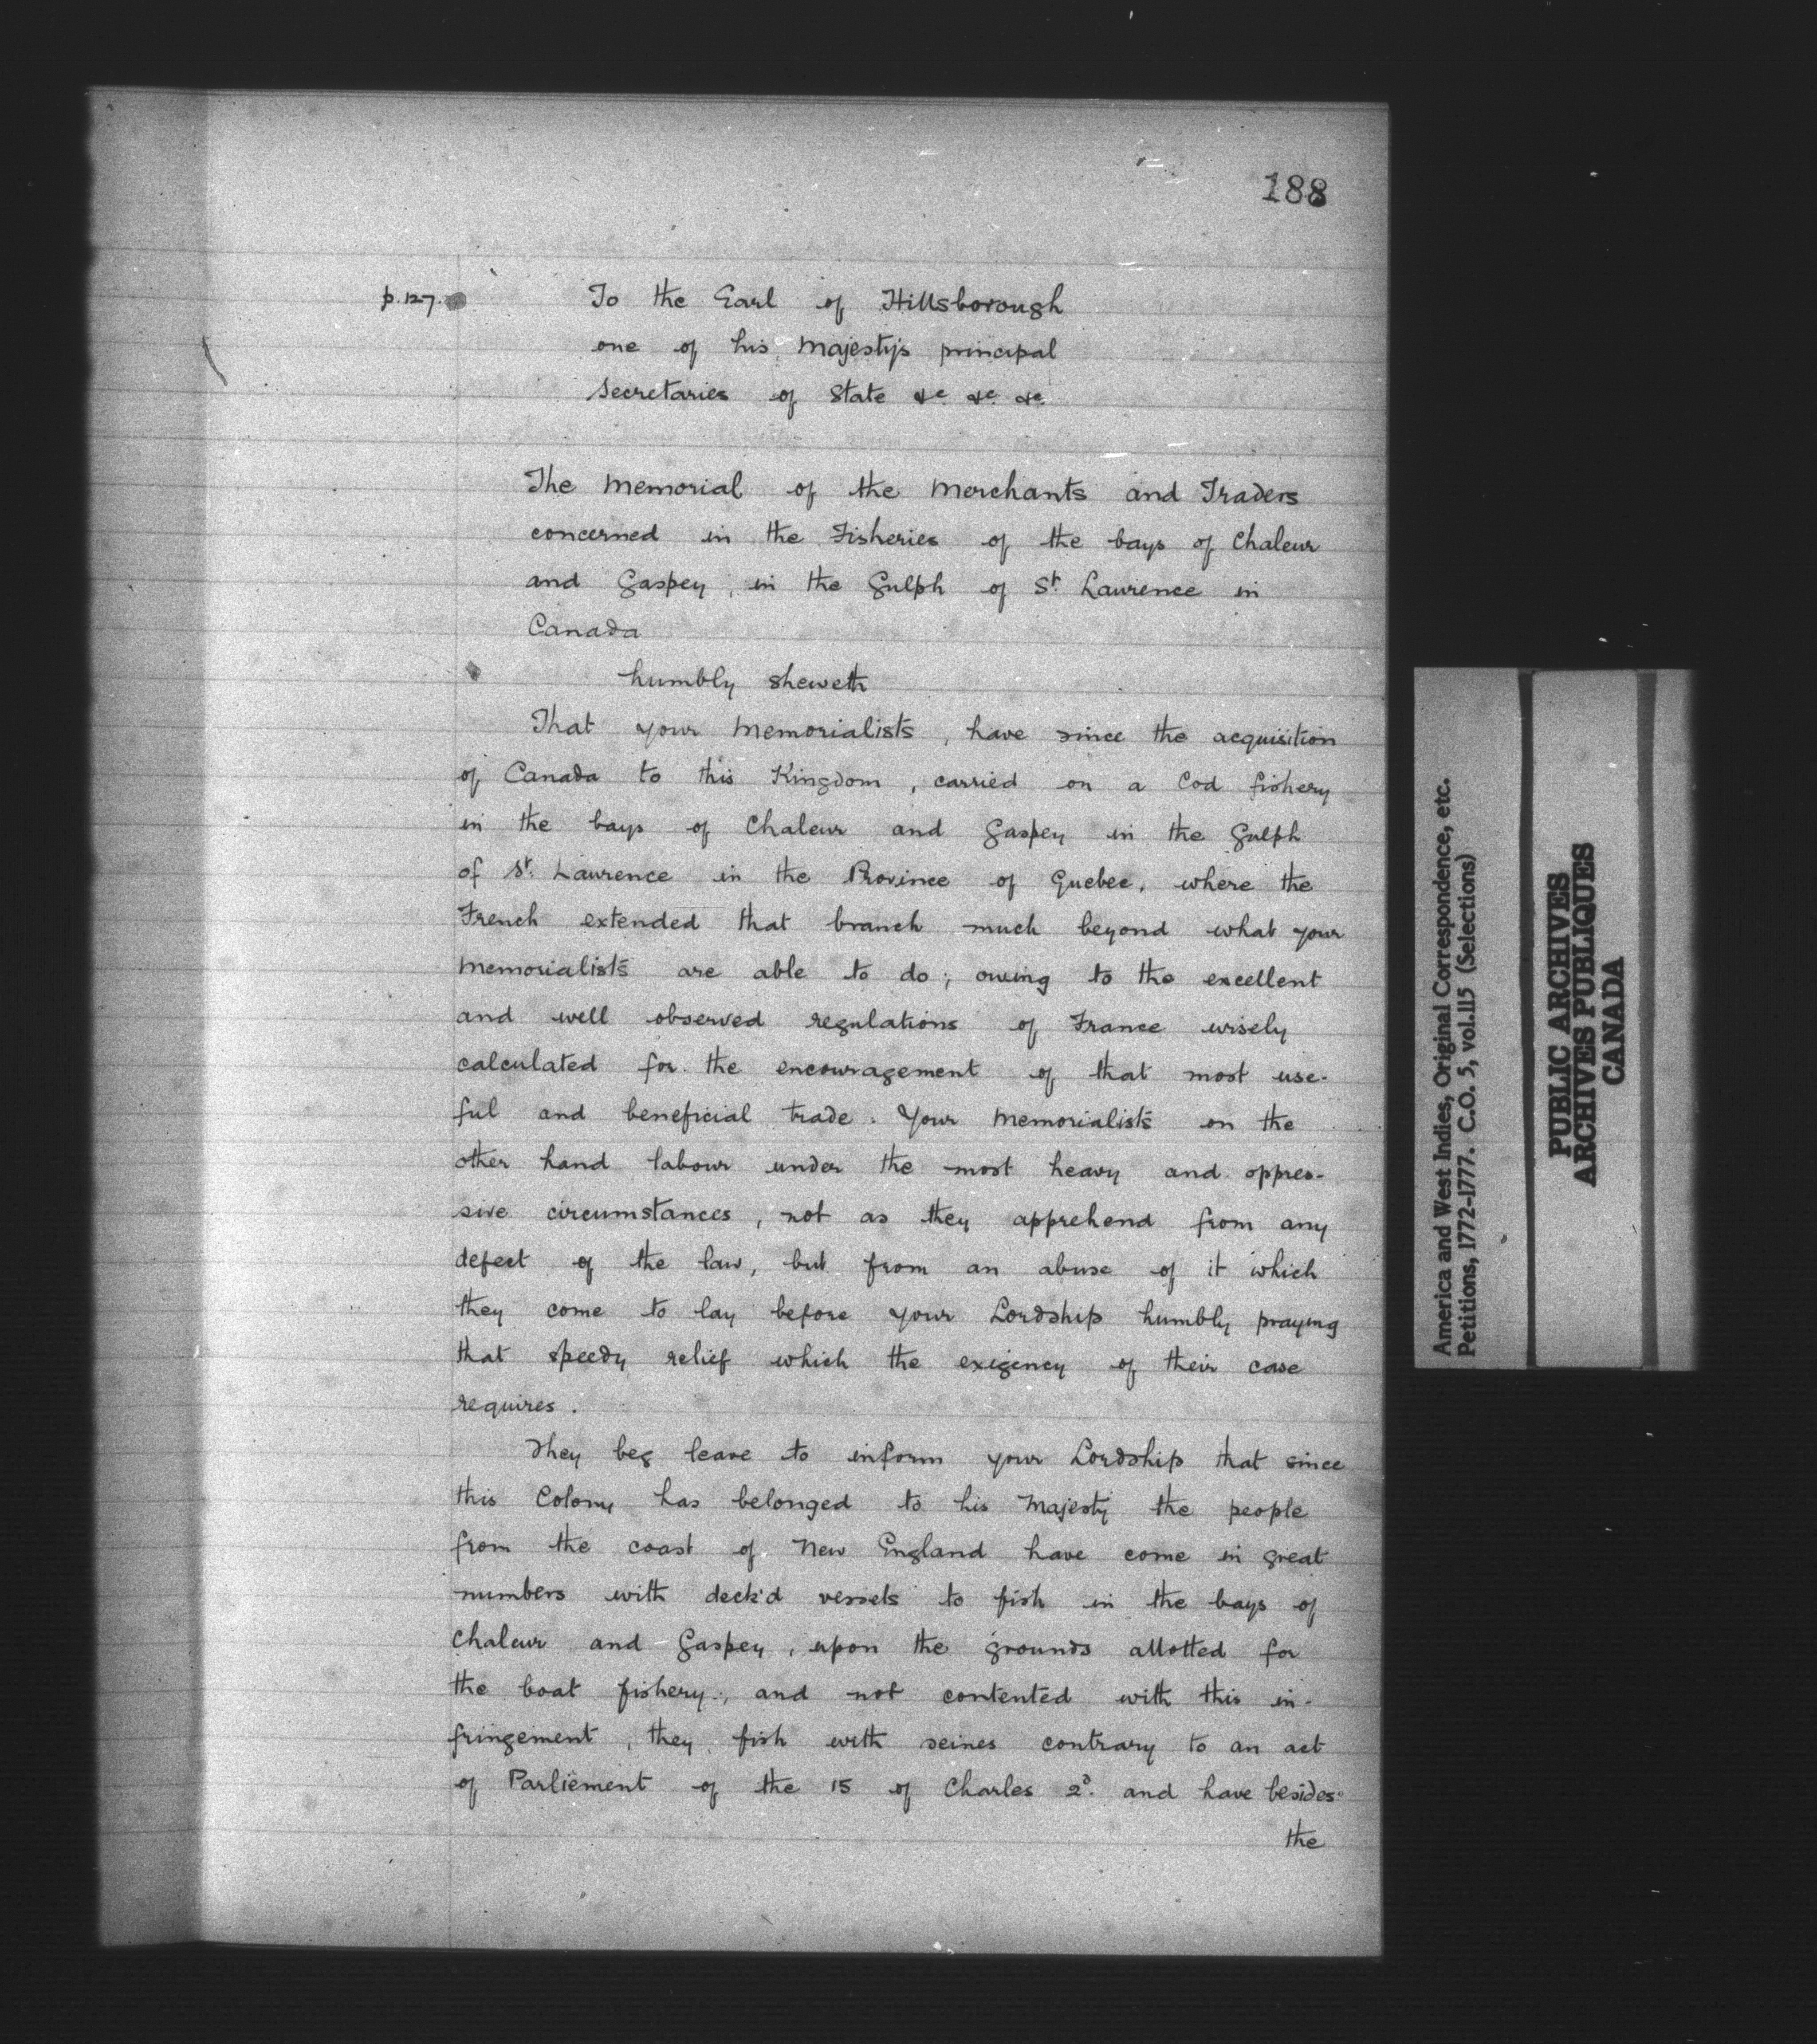 188
p. 127.
To the Earl of Hillsborough
one of his Majesty's principal
Secretaries of State &c &c &c
The Memorial of the Merchants and Traders
concerned in the Fisheries of the bays of Chaleur
and Gaspey, in the Gulph of St Laurence in
Canada
humbly sheweth
That your Memorialists, have since the acquisition
of Canada to this Kingdom, carried on a Cod fishery
in the bays of Chaleur and Gaspey in the Gulph
of St. Laurence in the Province of Quebec, where the
French extended that branch much beyond what your
Memorialists are able to do; owing to the excellent
and well observed regulations of France wisely
calculated for the encouragement of that most use-
ful and beneficial trade. Your Memorialists on the
other hand labour under the most heavy and oppres-
sive circumstances, not as they apprehend from any
defect of the law, but from an abuse of it which
they come to lay before your Lordship humbly praying
that speedy relief which the exigency of their case
requires.
They beg leave to inform your Lordship that since
this Colony has belonged to his Majesty the people
from the coast of New England have come in great
numbers with deck'd vessels to fish in the bays of
Chaleur and Gaspey, upon the grounds allotted for
the boat fishery, and not contented with this in-
fringement, they fish with seines contrary to an act
of Parliement of the 15 of Charles 2d. and have besides
the
America and West Indies, Original Correspondence, etc.
Petitions, 1772-1777. C.O. 5, vol.115 (Selections)
PUBLIC ARCHIVES
ARCHIVES PUBLIQUES
CANADA